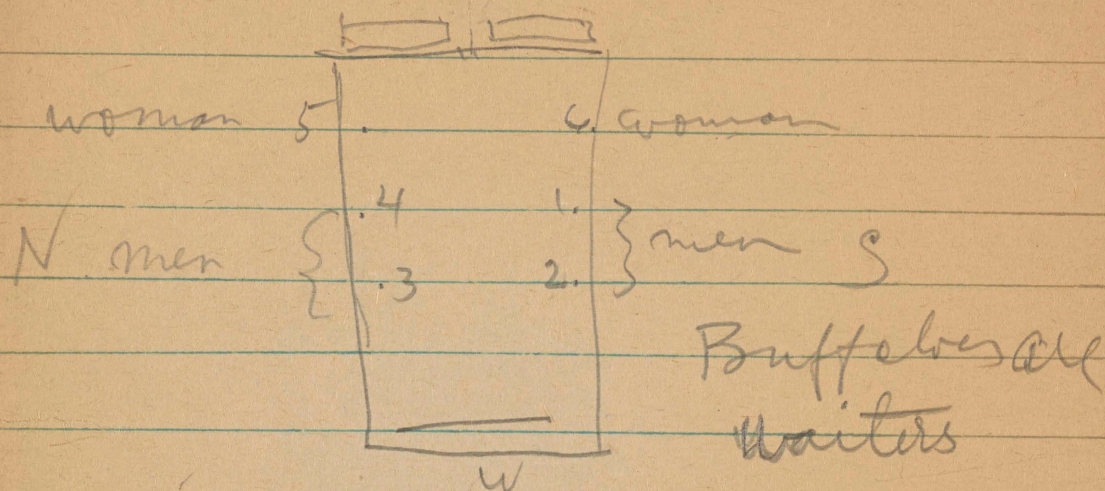 woman 5 6 woman
4 1
N men men S
3 2
Buffaloes are
waiters
W